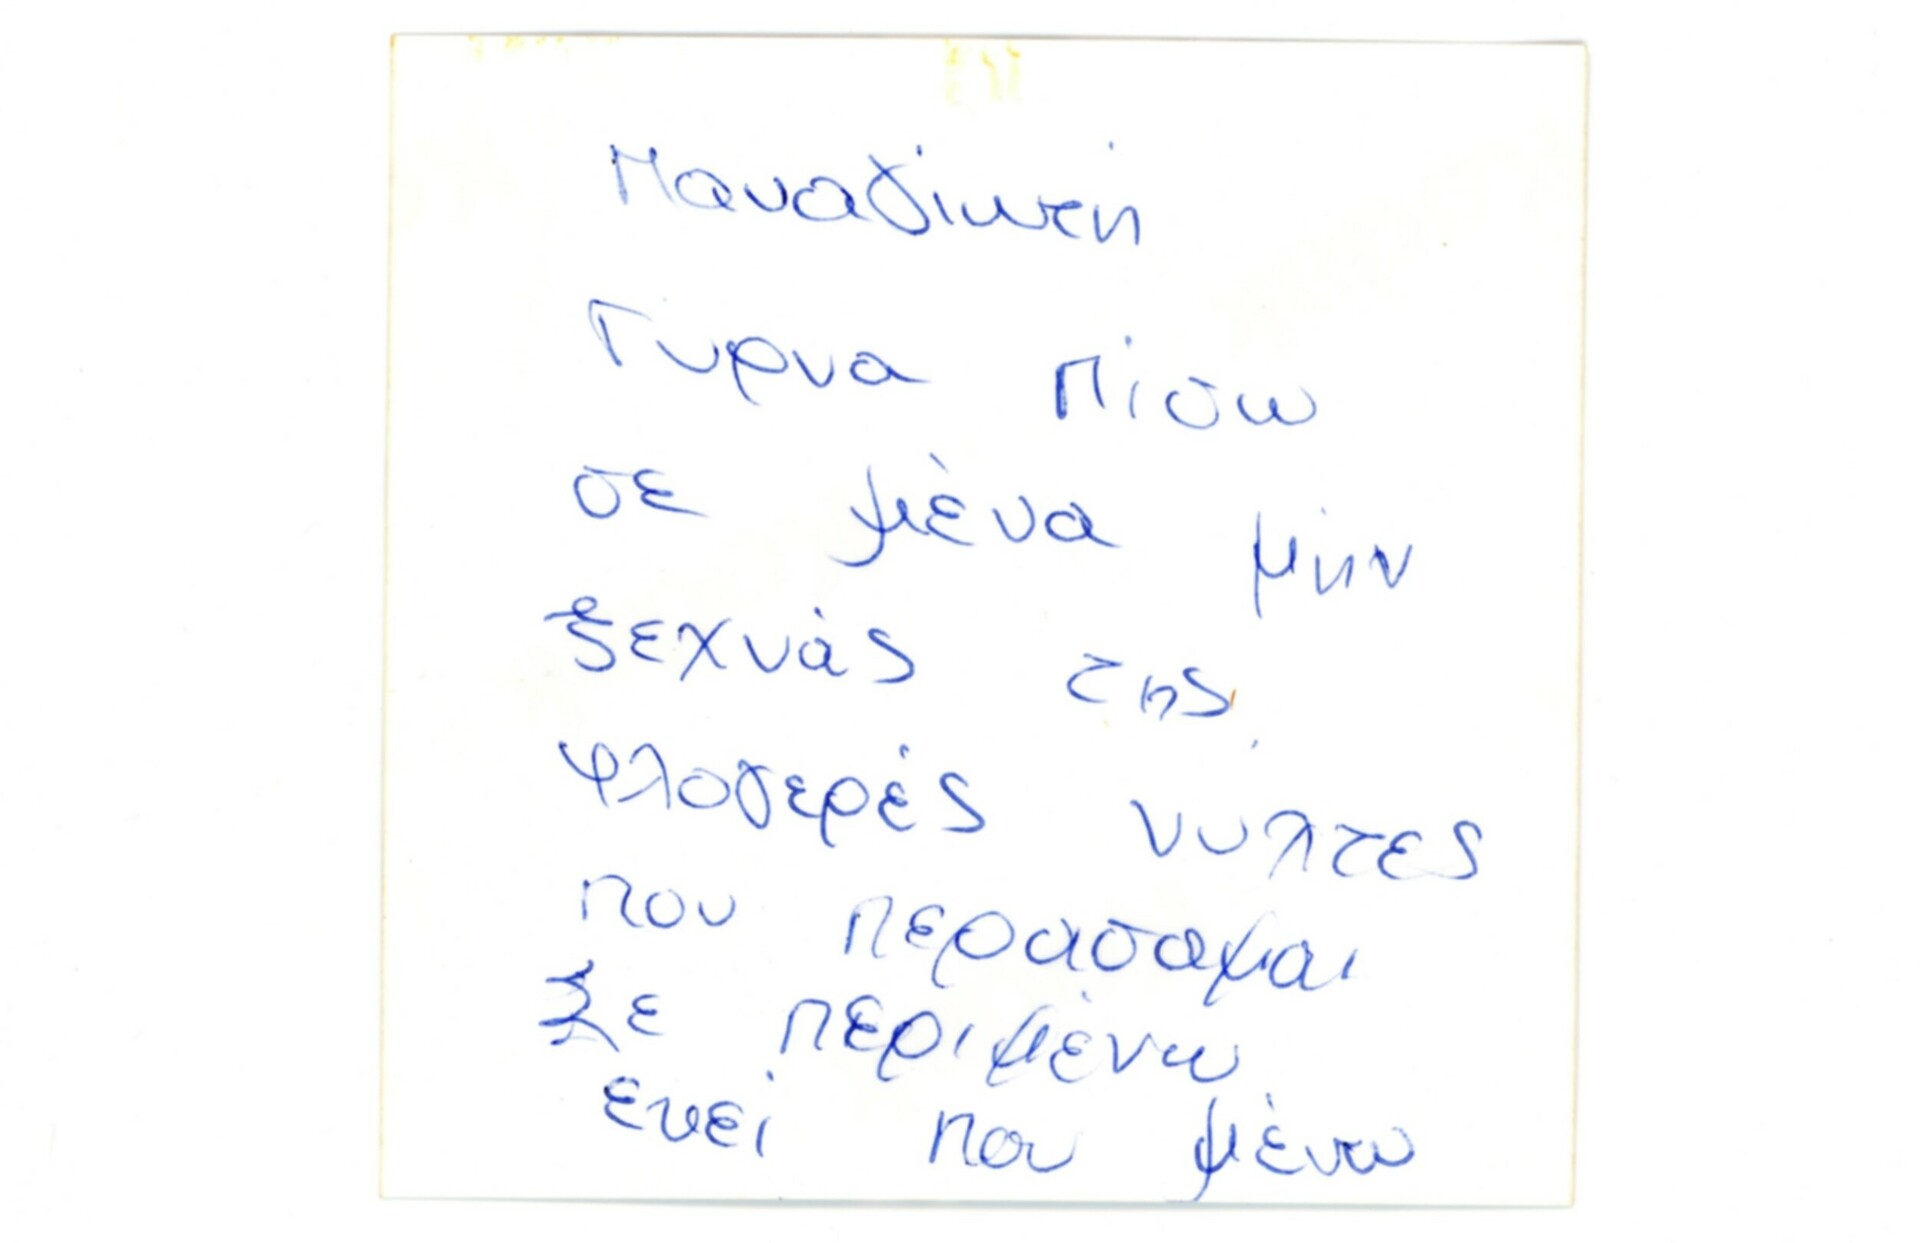 Παναγιωτη
Γυρνα πίσω
σε μένα μην
ξεχνάς της
φλογερές νυλτες
που περασαμαι
Σε περιμένω
εκεί που μένω